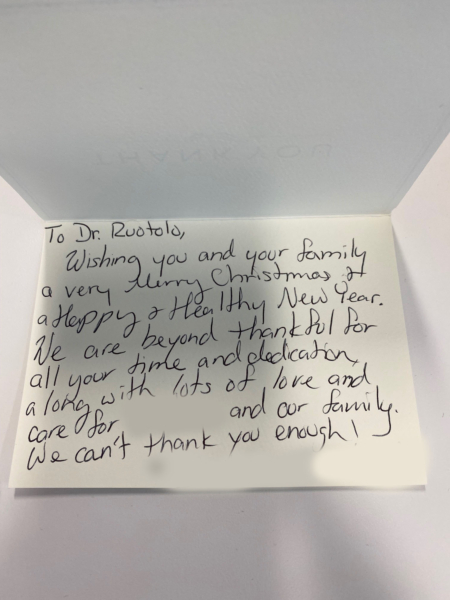 THANK YOU
To Dr. Ruotolo,
Wishing you and your family
a very Merry Christmas &
a Happy & Healthy New Year.
We are beyond thankful for
all your time and dedication,
along with lots of love and
care for and our family.
We can't thank you enough!